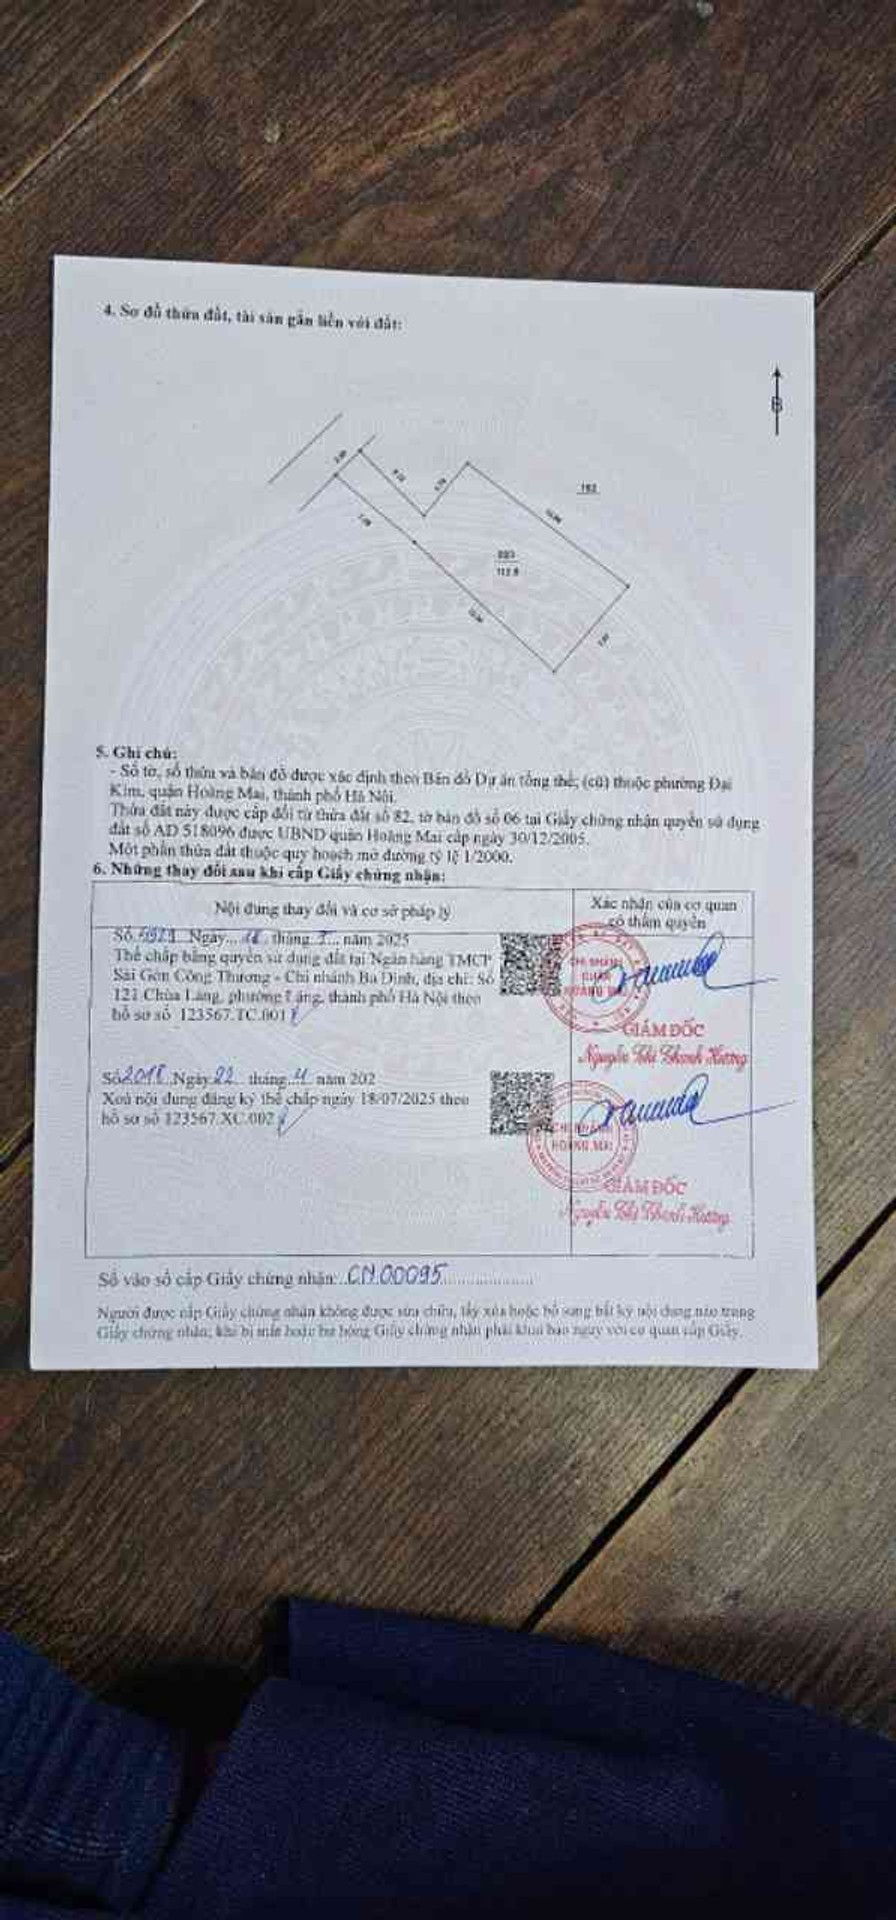 4. Sơ đồ thửa đất, tài sản gắn liền với đất:
B
182
112.8
5. Ghi chú:
- Số tờ, số thửa và bản đồ được xác định theo Bản đồ Dự án tổng thể; (cũ) thuộc phường Đại
Kim, quận Hoàng Mai, thành phố Hà Nội.
Thửa đất này được cấp đổi từ thửa đất số 82, tờ bản đồ số 06 tại Giấy chứng nhận quyền sử dụng
đất số AD 518096 được UBND quận Hoàng Mai cấp ngày 30/12/2005.
Một phần thửa đất thuộc quy hoạch mở đường tỷ lệ 1/2000.
6. Những thay đổi sau khi cấp Giấy chứng nhận:
Nội dung thay đổi và cơ sở pháp lý
Xác nhận của cơ quan
có thẩm quyền
Số Ngày... 18. tháng 7... năm 2025
Thế chấp bằng quyền sử dụng đất tại Ngân hàng TMCP
Sài Gòn Công Thương - Chi nhánh Ba Đình, địa chỉ: Số
121 Chùa Láng, phường Láng, thành phố Hà Nội theo
hồ sơ số 123567.TC.001
CHI NHÁNH
HOÀNG MAI
GIÁM ĐỐC
Nguyễn Thị Thanh Hương
Số 2018 Ngày 22 tháng 11 năm 202
Xoá nội dung đăng ký thế chấp ngày 18/07/2025 theo
hồ sơ số 123567.XC.002
CHI NHÁNH
HOÀNG MAI
GIÁM ĐỐC
Nguyễn Thị Thanh Hương
Số vào sổ cấp Giấy chứng nhận: CN.00095
Người được cấp Giấy chứng nhận không được sửa chữa, tẩy xóa hoặc bổ sung bất kỳ nội dung nào trong
Giấy chứng nhận; khi bị mất hoặc hư hỏng Giấy chứng nhận phải khai báo ngay với cơ quan cấp Giấy.